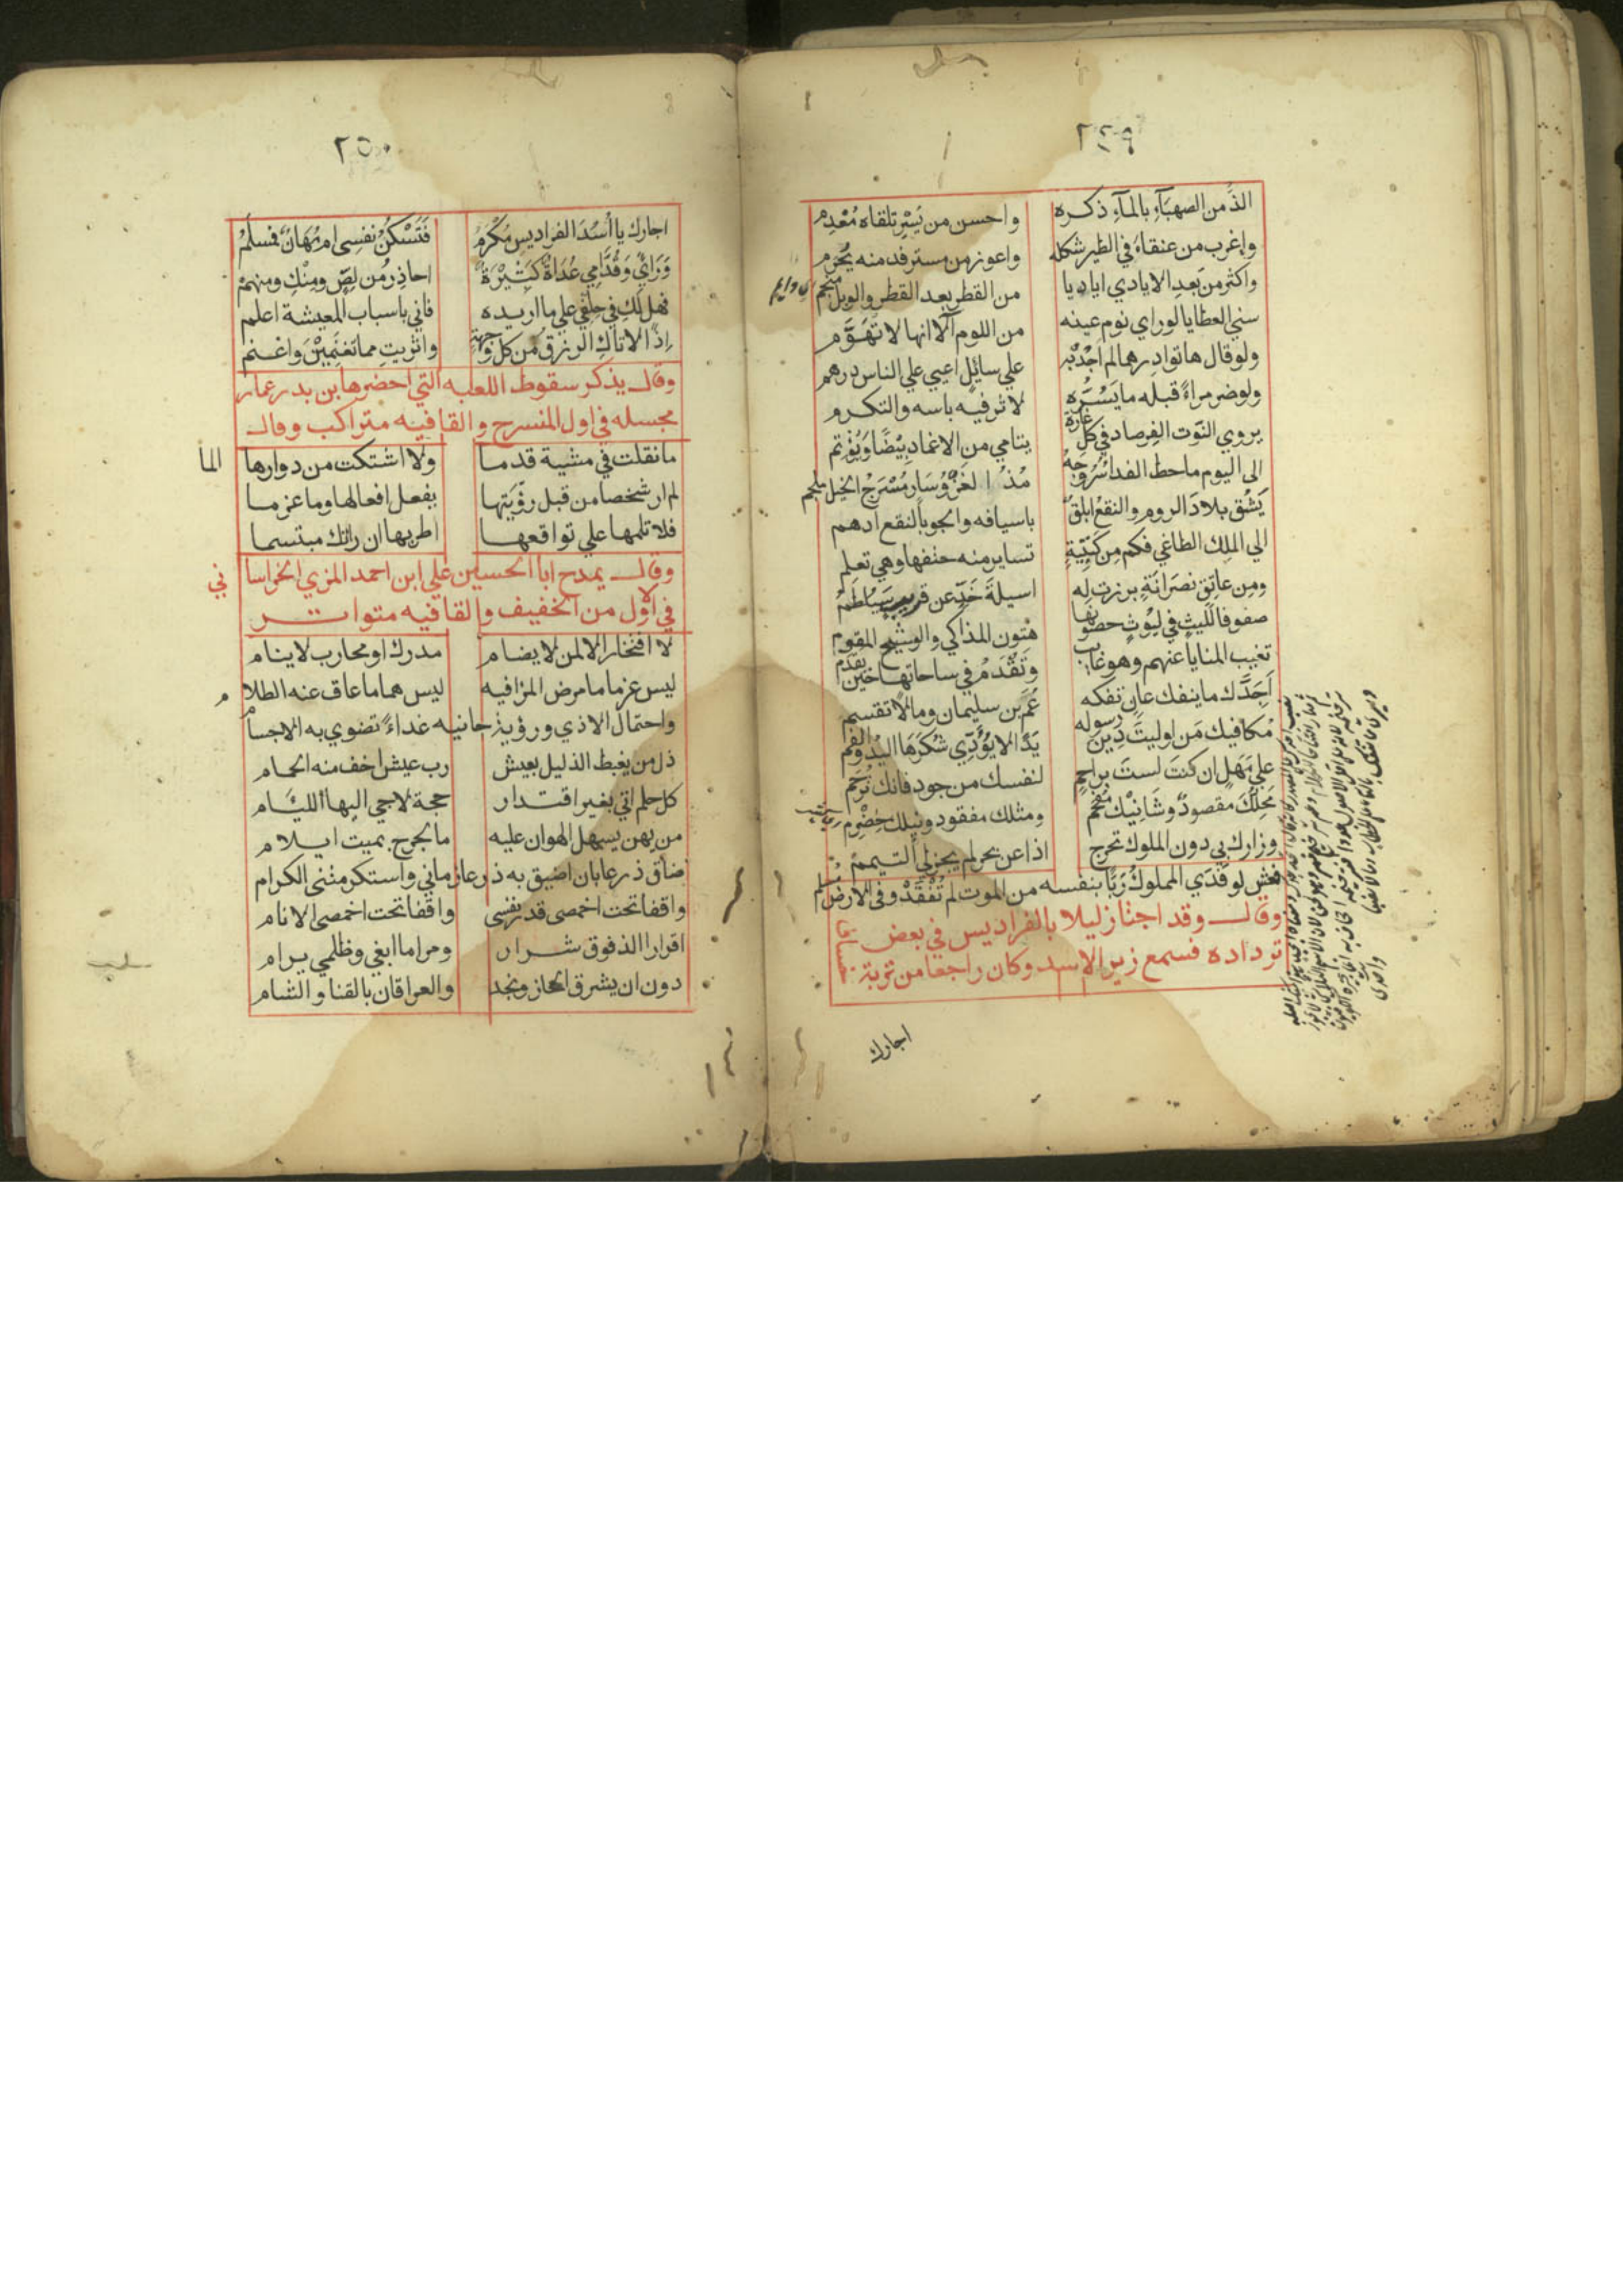 ٢٤٩
الذ من الصهبآء بالمآء ذكره واحسن من يسر تلقاه معدم
واغرب من عنقاء في الطير شكله واعوز من مسترفد منه يحرم
واكثر من بعد الايادي اياديا من القطر بعد القطر والوبل منجم
سني العطايا لو راي نوم عينه من اللوم آلا انها لا تهوم
ولو قال هاتوا درهما لم اجد به علي سائل اعيي علي الناس درهم
ولو ضر مراً قبله ما يسره لاثر فيه باسه والتكرم
يروي التوت الفرصاد في كل غارة يتامي من الاغماد بيضا ويؤتم
الى اليوم ما حط الفدا سروجه مذ الغزو سار مسرج الخيل ملجم
يشق بلاد الروم والنقع ابلق باسيافه والجو بالنقع ادهم
الي الملك الطاغي فكم من كتيبة تساير منه حتفها وهي تعلم
ومن عاتق نصرانة برزت له اسيلة خد عن قريب سيلطم
صفوفا لليث في ليوث حصونها متون المذاكي والوشيج المقوم
تغيب المنايا عنهم وهو غايب وتقدم في ساحاتها حين يقدم
اجدك ما ينفك عان تفكه عم بن سليمان ومالا تقسم
مكافيك من اوليت دين رسوله يدا لا يؤدي شكرها اليد والفم
علي مهل ان كنت لست براحم لنفسك من جود فانك ترحم
محلك مقصود وشانيك مفحم ومثلك مفقود ونيلك خضرم
وزارك بي دون الملوك تحرج اذا عن بحر لم يجز لي التيمم
فعش لو فدي المملوك ربا بنفسه من الموت لم تفقد وفي الارض مسلم
وقال وقد اجتاز ليلا بالفراديس في بعض
ترداده فسمع زير الاسد وكان راجعا من تربة
اجارك
٢٥٠
اجارك يا أسد الفراديس مكرم فتسكن نفسي ام مهان فمسلم
ورائي وقدامي عداة كثيرة احاذر من لص ومنك ومنهم
فهل لك في حلفي علي ما اريده فاني باسباب المعيشة اعلم
اذا لاتاك الرزق من كل وجهة واثريت مما تغنمين واغنم
وقال يذكر سقوط اللعبه التي احضرها بن بدر عمار
مجسله في اول المنسرح والقافيه متراكب وقال
ما نقلت في مشية قدما ولا اشتكت من دوارها الما
لم ار شخصا من قبل رؤيتها يفعل افعالها وما عزما
فلا تلمها علي تواقعها اطربها ان راتك مبتسما
وقال يمدح ابا الحسين علي ابن احمد المزي الخراساني
في الاول من الخفيف والقافيه متواتر
لا افتخار الا لمن لا يضام مدرك او محارب لا ينام
ليس عزما ما مرض المر فيه ليس هما ما عاق عنه الظلام
واحتمال الاذي ورؤية جانيه غداءً تضنوي به الاجسام
ذل من يغبط الذليل بعيش رب عيش اخف منه الحمام
كل حلم اتي بغير اقتدار حجة لاجي اليها الليام
من يهن يسهل الهوان عليه ما لجرح بميت ايلام
ضاق ذرعا بان اضيق به ذرعا زماني واستكرمتني الكرام
واقفا تحت اخمصى قدر نفسى واقفا تحت اخمصى الانام
اقرارا الذ فوق شرار ومراما ابغي وظلمي يرام
دون ان يشرق الحجاز ونجد والعراقان بالقنا والشام